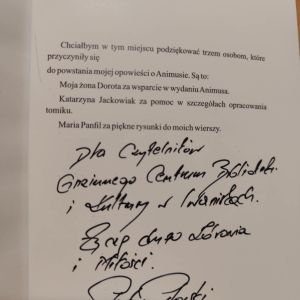 Chciałbym w tym miejscu podziękować trzem osobom, które
przyczyniły się
do powstania mojej opowieści o Animusie. Są to:
Moja żona Dorota za wsparcie w wydaniu Animusa.
Katarzyna Jackowiak za pomoc w szczegółach opracowania
tomiku.
Maria Panfil za piękne rysunki do moich wierszy.
Dla Czytelników
Gminnego Centrum Biblioteki
i Kultury w Iwaniskach.
Życzę dużo Zdrowia
i Miłości.